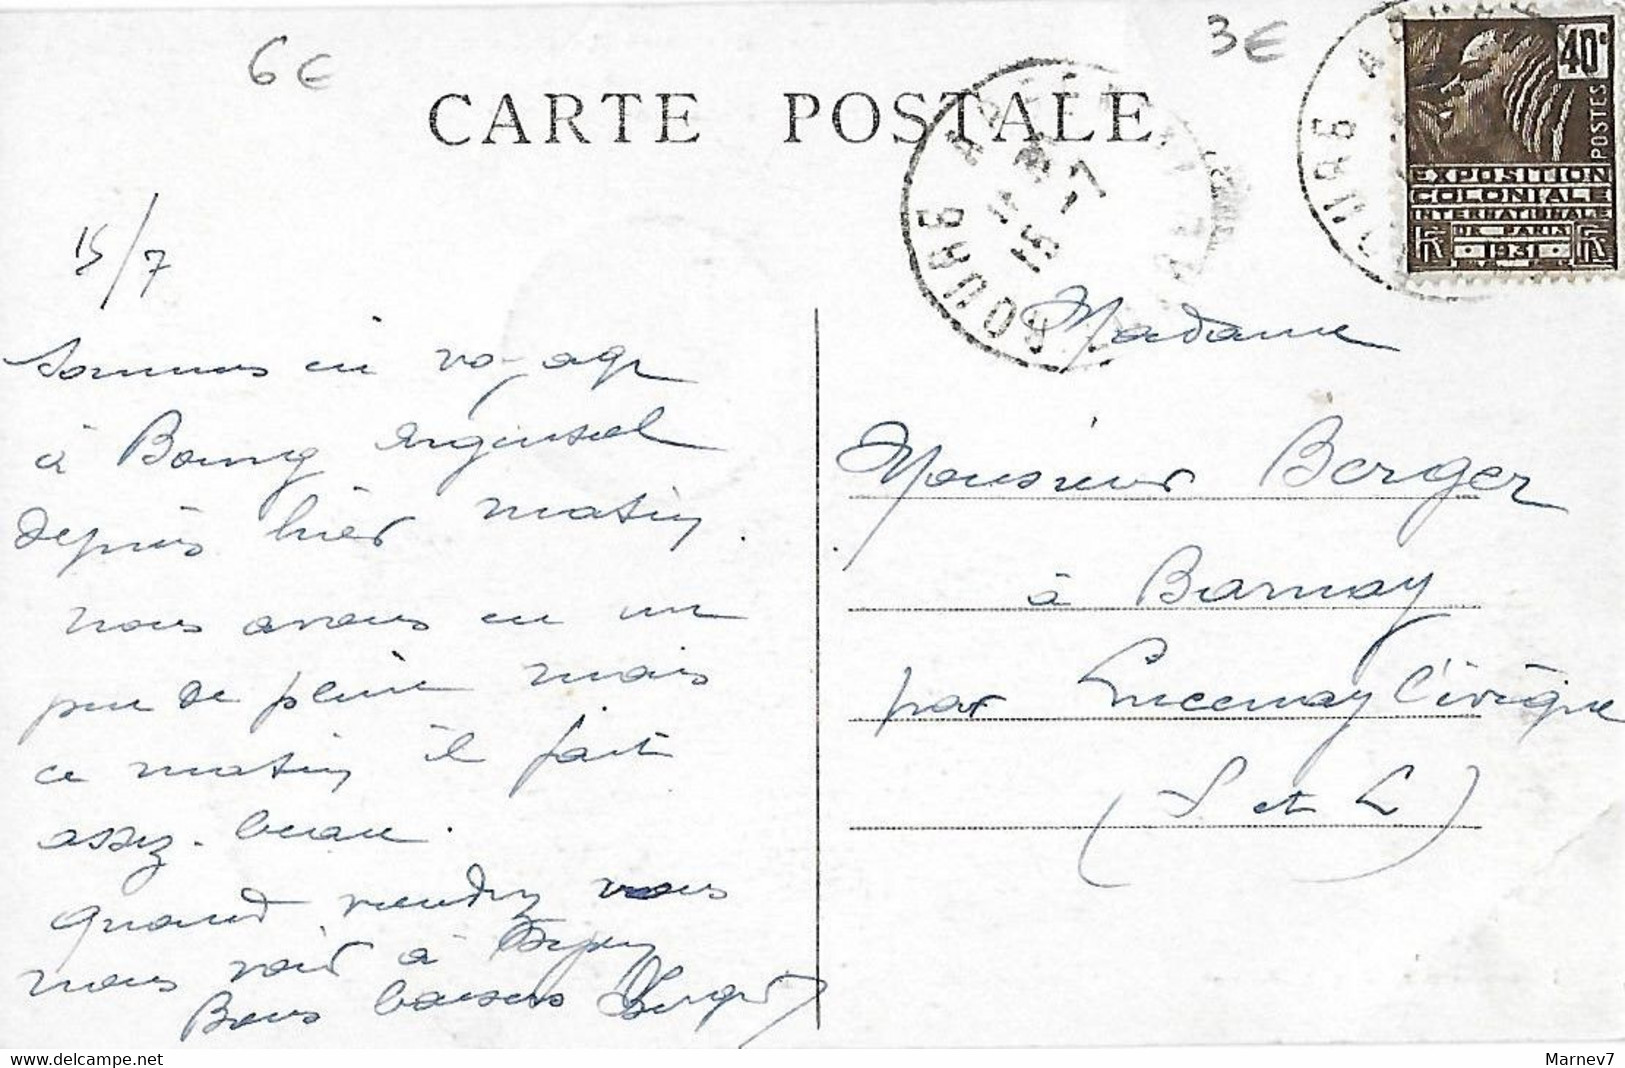 6€
3€
CARTE POSTALE
BOURG ARGENTAL
15-7
40c
POSTES
EXPOSITION
COLONIALE
INTERNATIONALE
DE PARIS
1931
15/7
Sommes en voyage
à Bourg Argental
depuis hier matin.
nous avons eu un
peu de pluie mais
ce matin il fait
assez beau.
Quand viendrez vous
nous voir à
Bons baisers
Madame
Monsieur Berger
à Barnay
par Lucenay l'évêque
(S et L)
delcampe.net
Marnev7